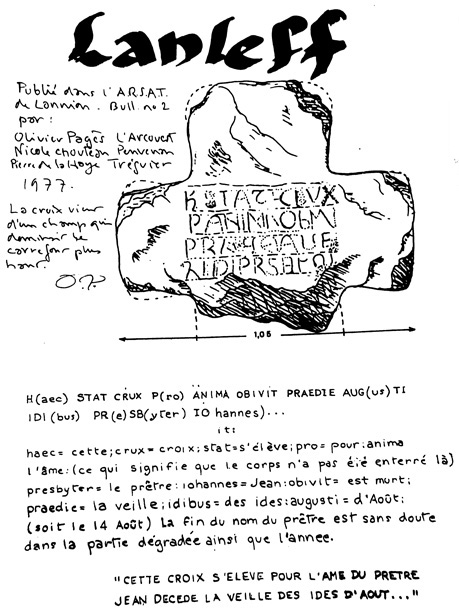 Lanleff
Publié dans l'A.R.S.A.T.
de Lannion. Bull. no 2
par:
Olivier Pagès L'Arcouest
Nicole Chouteau Penvenan
Pierre de la Haye Tréguier
1977.
La croix vient
d'un champ qui
dominait le
carrefour plus
haut.
H STAT CRUX
P ANIMA OBIVI
1,05
H(aec) STAT CRUX P(ro) ANIMA OBIVIT PRAEDIE AUG(us)TI
IDI(bus) PR(e)SB(yter) IO hannes)...
iti
haec= cette;crux=croix;stat=s'élève;pro=pour;anima
l'âme;(ce qui signifie que le corps n'a pas été enterré là)
presbyter= le prêtre:iohannes=Jean:obivit= est mort;
praedie= la veille;idibus=des ides:augusti=d'Août;
(soit le 14 Août) La fin du nom du prêtre est sans doute
dans la partie dégradée ainsi que l'annee.
"CETTE CROIX S'ELEVE POUR L'AME DU PRETRE
JEAN DECEDE LA VEILLE DES IDES D'AOUT..."